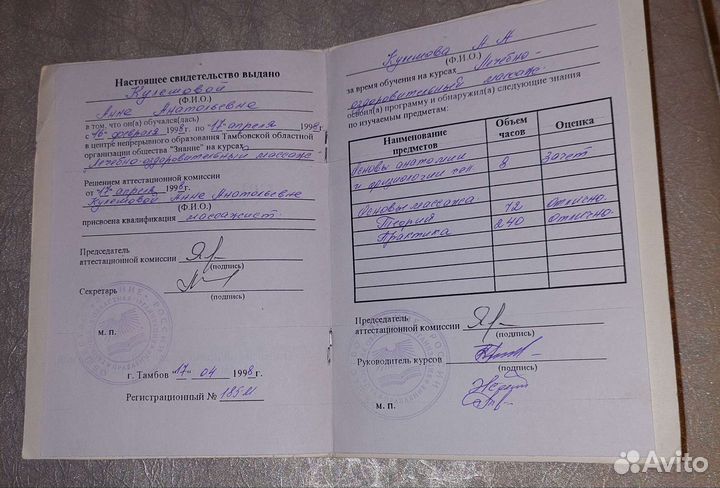 Настоящее свидетельство выдано
Кулешовой
(Ф.И.О.)
Анне Анатольевне
в том, что он(а) обучался(лась)
с 16 февраля 1998 г. по 17 апреля 1998 г.
в центре непрерывного образования Тамбовской областной
организации общества "Знание" на курсах
Лечебно-оздоровительный массаж
Решением аттестационной комиссии
от 17 апреля 1998 г.
Кулешовой Анне Анатольевне
(Ф.И.О.)
присвоена квалификация массажист
Председатель
аттестационной комиссии
(подпись)
Секретарь
(подпись)
М. П.
г. Тамбов "17" 04 1998 г.
Регистрационный № 185 М
Кулешова А А
(Ф.И.О.)
за время обучения на курсах Лечебно-
оздоровительный массаж
освоил(а) программу и обнаружил(а) следующие знания
по изучаемым предметам:
Наименование предметов Объем часов Оценка
Основы анатомии 8 Зачет
и физиологии чел.
Основы массажа
Теория 72 Отлично
Практика 240 Отлично
Председатель
аттестационной комиссии
(подпись)
Руководитель курсов
(подпись)
М. П.
Avito